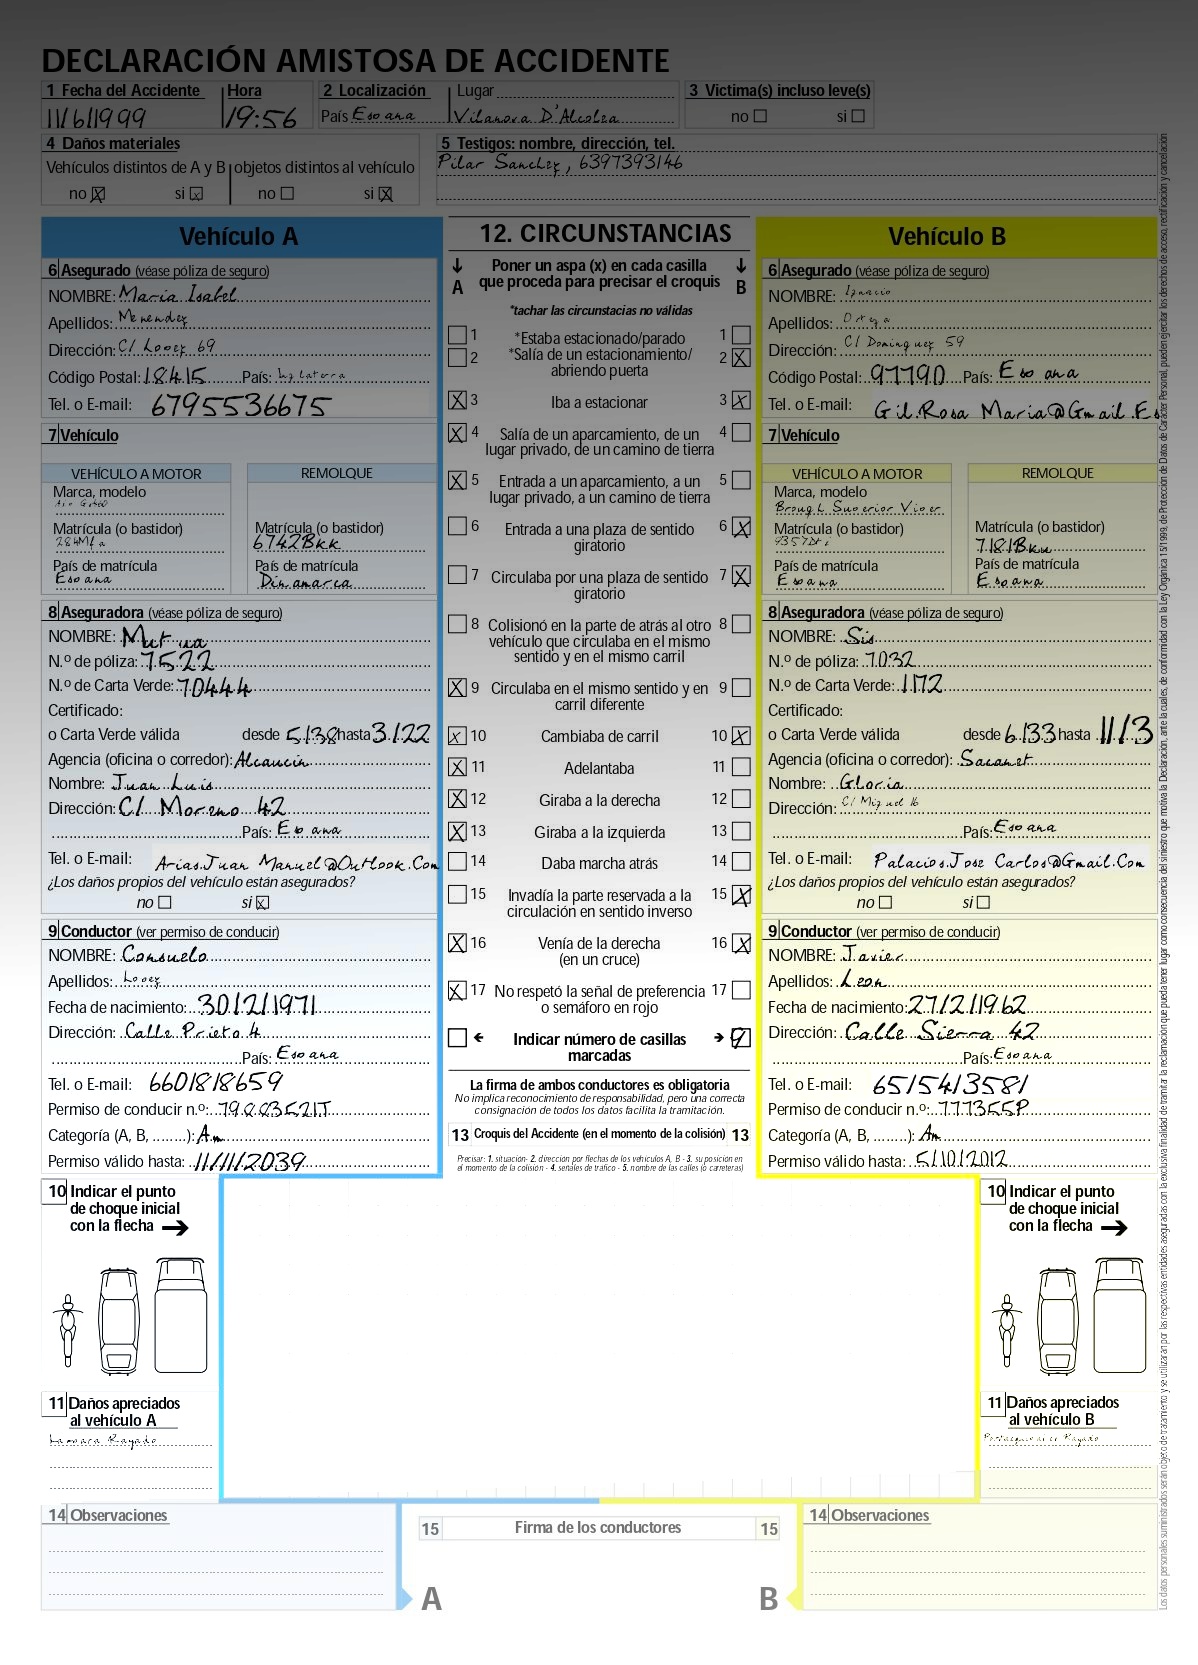 DECLARACIÓN AMISTOSA DE ACCIDENTE
1 Fecha del Accidente Hora 2 Localización Lugar 3 Victima(s) incluso leve(s)
11/6/1999 19:56 País Espana Vilanova D'Alcolea no si
4 Daños materiales 5 Testigos: nombre, dirección, tel.
Vehículos distintos de A y B objetos distintos al vehículo Pilar Sanchez, 6397393146
no X si X no si X
Vehículo A
6 Asegurado (véase póliza de seguro)
NOMBRE: Maria Isabel
Apellidos: Menendez
Dirección: C/ Lopez 69
Código Postal: 18415 País: Inglaterra
Tel. o E-mail: 6795536675
7 Vehículo
VEHÍCULO A MOTOR REMOLQUE
Marca, modelo
Matrícula (o bastidor) Matrícula (o bastidor)
6742Bkk
País de matrícula País de matrícula
Espana Dinamarca
8 Aseguradora (véase póliza de seguro)
NOMBRE: Mutua
N.º de póliza: 7522
N.º de Carta Verde: 70444
Certificado:
o Carta Verde válida desde 5/38 hasta 3/22
Agencia (oficina o corredor): Alcaucin
Nombre: Juan Luis
Dirección: C/ Moreno 42
País: Espana
Tel. o E-mail: Arias.Juan Manuel@Outlook.Com
¿Los daños propios del vehículo están asegurados?
no si X
9 Conductor (ver permiso de conducir)
NOMBRE: Consuelo
Apellidos: Lopez
Fecha de nacimiento: 30/2/1971
Dirección: Calle Prieto 4
País: Espana
Tel. o E-mail: 6601818659
Permiso de conducir n.º: 79003521T
Categoría (A, B, ........): Am
Permiso válido hasta: 11/11/2039
10 Indicar el punto
de choque inicial
con la flecha
11 Daños apreciados
al vehículo A
Rayado
14 Observaciones
12. CIRCUNSTANCIAS
A Poner un aspa (x) en cada casilla B
que proceda para precisar el croquis
*tachar las circunstacias no válidas
1 *Estaba estacionado/parado 1
2 *Salía de un estacionamiento/ 2 X
abriendo puerta
X 3 Iba a estacionar 3 X
X 4 Salía de un aparcamiento, de un 4
lugar privado, de un camino de tierra
X 5 Entrada a un aparcamiento, a un 5
lugar privado, a un camino de tierra
6 Entrada a una plaza de sentido 6 X
giratorio
7 Circulaba por una plaza de sentido 7 X
giratorio
8 Colisionó en la parte de atrás al otro 8
vehículo que circulaba en el mismo
sentido y en el mismo carril
X 9 Circulaba en el mismo sentido y en 9
carril diferente
X 10 Cambiaba de carril 10 X
X 11 Adelantaba 11
X 12 Giraba a la derecha 12
X 13 Giraba a la izquierda 13
14 Daba marcha atrás 14
15 Invadía la parte reservada a la 15 X
circulación en sentido inverso
X 16 Venía de la derecha 16 X
(en un cruce)
X 17 No respetó la señal de preferencia 17
o semáforo en rojo
Indicar número de casillas 9
marcadas
La firma de ambos conductores es obligatoria
No implica reconocimiento de responsabilidad, pero una correcta
consignación de todos los datos facilita la tramitación.
13 Croquis del Accidente (en el momento de la colisión) 13
Precisar: 1. situación- 2. dirección por flechas de los vehículos A, B - 3. su posición en
el momento de la colisión - 4. señales de tráfico - 5. nombre de las calles (o carreteras)
15 Firma de los conductores 15
A B
Vehículo B
6 Asegurado (véase póliza de seguro)
NOMBRE: Ignacio
Apellidos: Ortega
Dirección: C/ Dominguez 59
Código Postal: 97790 País: Espana
Tel. o E-mail: Gil.Rosa Maria@Gmail.Es
7 Vehículo
VEHÍCULO A MOTOR REMOLQUE
Marca, modelo
Brough Superior Viper
Matrícula (o bastidor) Matrícula (o bastidor)
7181Bku
País de matrícula País de matrícula
Espana Espana
8 Aseguradora (véase póliza de seguro)
NOMBRE: Sis
N.º de póliza: 7032
N.º de Carta Verde: 1172
Certificado:
o Carta Verde válida desde 6/33 hasta 11/3
Agencia (oficina o corredor): Sacanet
Nombre: Gloria
Dirección: C/ Miguel 16
País: Espana
Tel. o E-mail: Palacios.Jose Carlos@Gmail.Com
¿Los daños propios del vehículo están asegurados?
no si
9 Conductor (ver permiso de conducir)
NOMBRE: Javier
Apellidos: Leon
Fecha de nacimiento: 27/2/1962
Dirección: Calle Sierra 42
País: Espana
Tel. o E-mail: 6515413581
Permiso de conducir n.º: 777355P
Categoría (A, B, ........): Am
Permiso válido hasta: 5/10/2012
10 Indicar el punto
de choque inicial
con la flecha
11 Daños apreciados
al vehículo B
Rayado
14 Observaciones
Los datos personales suministrados serán objeto de tratamiento y se utilizaran por las respectivas entidades aseguradas con la exclusiva finalidad de tramitar la reclamación que pueda tener lugar como consecuencia del siniestro que motiva la Declaración, ante la cuales, de conformidad con la Ley Orgánica 15/1999, de Protección de Datos de Carácter Personal, pueden ejercitar los derechos de acceso, rectificación y cancelación